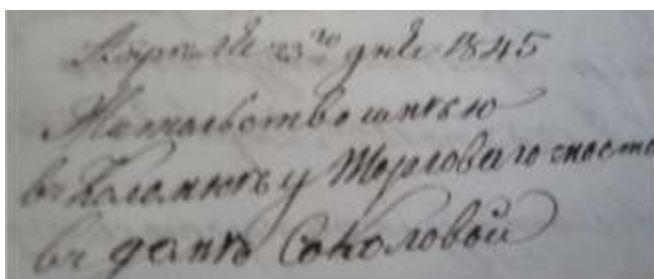 Апреля 23го дня 1845
Жительство имѣю
въ Коломнѣ у Торговаго моста
въ домѣ Соколовой